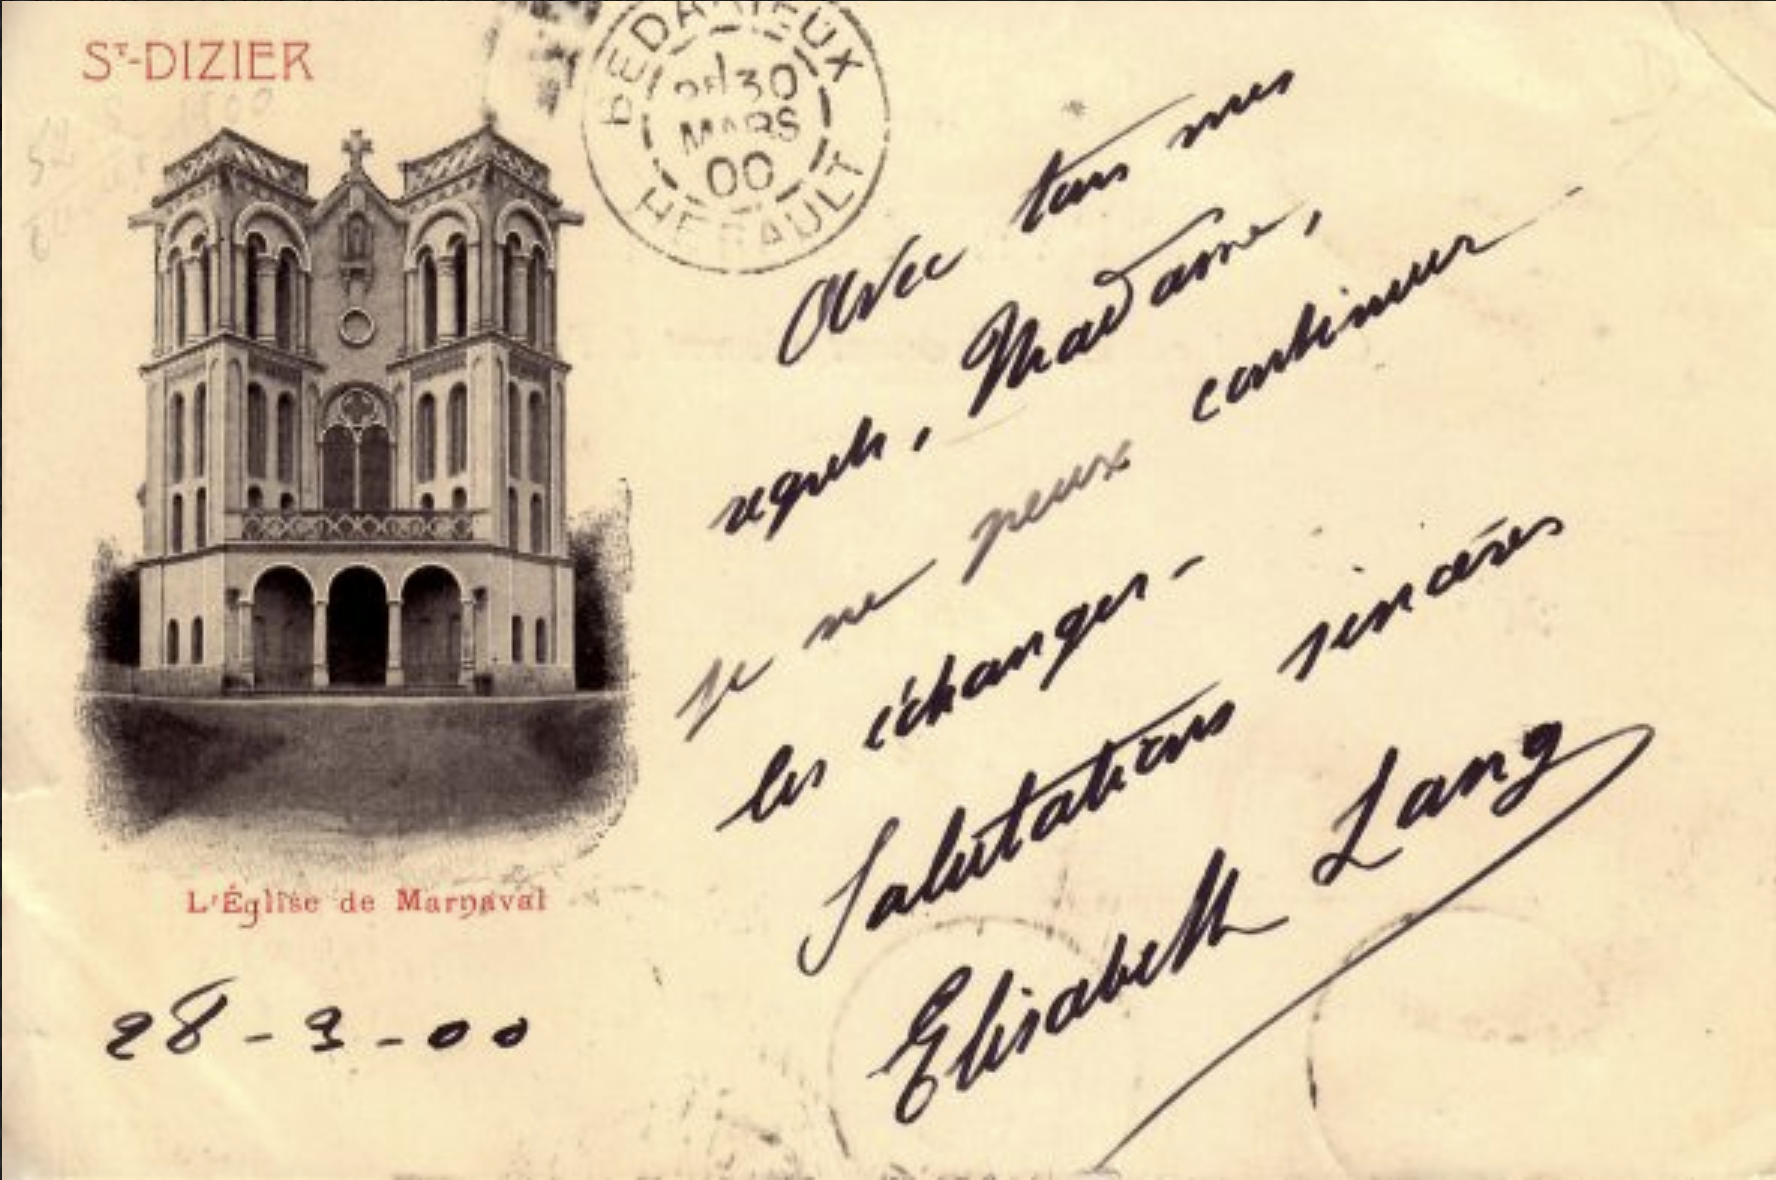 St-DIZIER
BEDARIEUX
30
MARS
00
HERAULT
Avec tous mes
regrets, Madame,
je ne peux continuer
les échanges -
Salutations sincères
Elisabeth Lang
L'Église de Marnaval
28-3-00